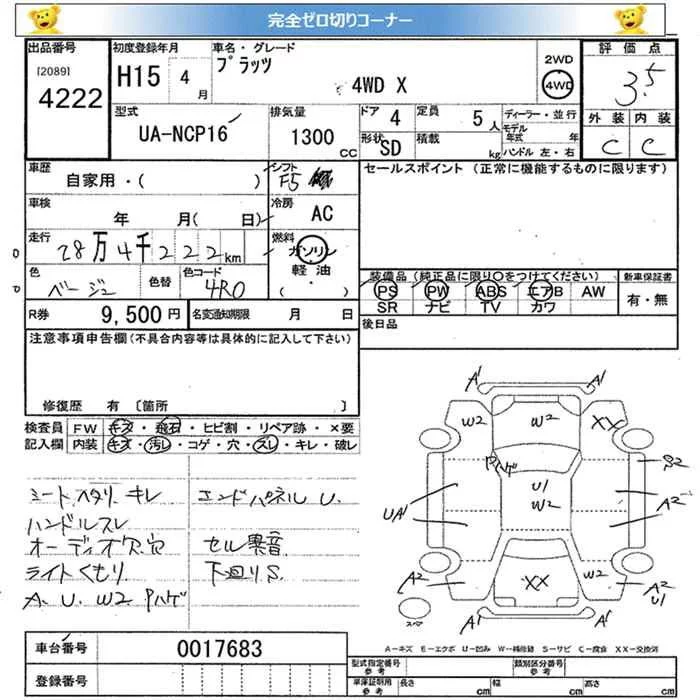 完全ゼロ切りコーナー
出品番号
[2089]
4222
初度登録年月
H15 4月
車名・グレード
プラッツ
4WD X
2WD
4WD
評価点
3.5
型式
UA-NCP16
排気量
1300 CC
ドア
4
形状
SD
定員
5人
積載
kg
ディーラー・並行
モデル年式 年
ハンドル 左・右
外装 内装
C C
車歴
自家用・( )
シフト
F5
セールスポイント (正常に機能するものに限ります)
車検
年 月( 日)
冷房
AC
走行
28万4千222km
燃料
ガソリン
軽油
( ・ )
色
ベージュ
色替
色コード
4R0
装備品 (純正品に限り○をつけてください)
PS PW ABS エアB AW
SR ナビ TV カワ
新車保証書
有・無
R券 9,500円
名変通知期限 月 日
後日品
注意事項申告欄(不具合内容等は具体的に記入して下さい)
修復歴 有 〔箇所 〕
検査員記入欄
FW キズ・飛石・ヒビ割・リペア跡・×要
内装 キズ・汚レ・コゲ・穴・スレ・キレ・破レ
シートヘタリ.キレ
エンドパネル U.
ハンドルスレ
オーディオ欠.穴
セル異音
ライトくもり.
下廻りS.
A. U. W2 Pハゲ
A' A'
W2 W2 XX
Pハゲ
S2
U1
W2
UA'
A2
A2
XX W2
A2
U1
スペア
A' A'
A-キズ E-エクボ U-凹み W-補修跡 S-サビ C-腐食 XX-交換済
車台番号
0017683
登録番号
型式指定番号
参考
類別区分番号
参考
車庫証明用
参考
長さ cm 幅 cm 高さ cm